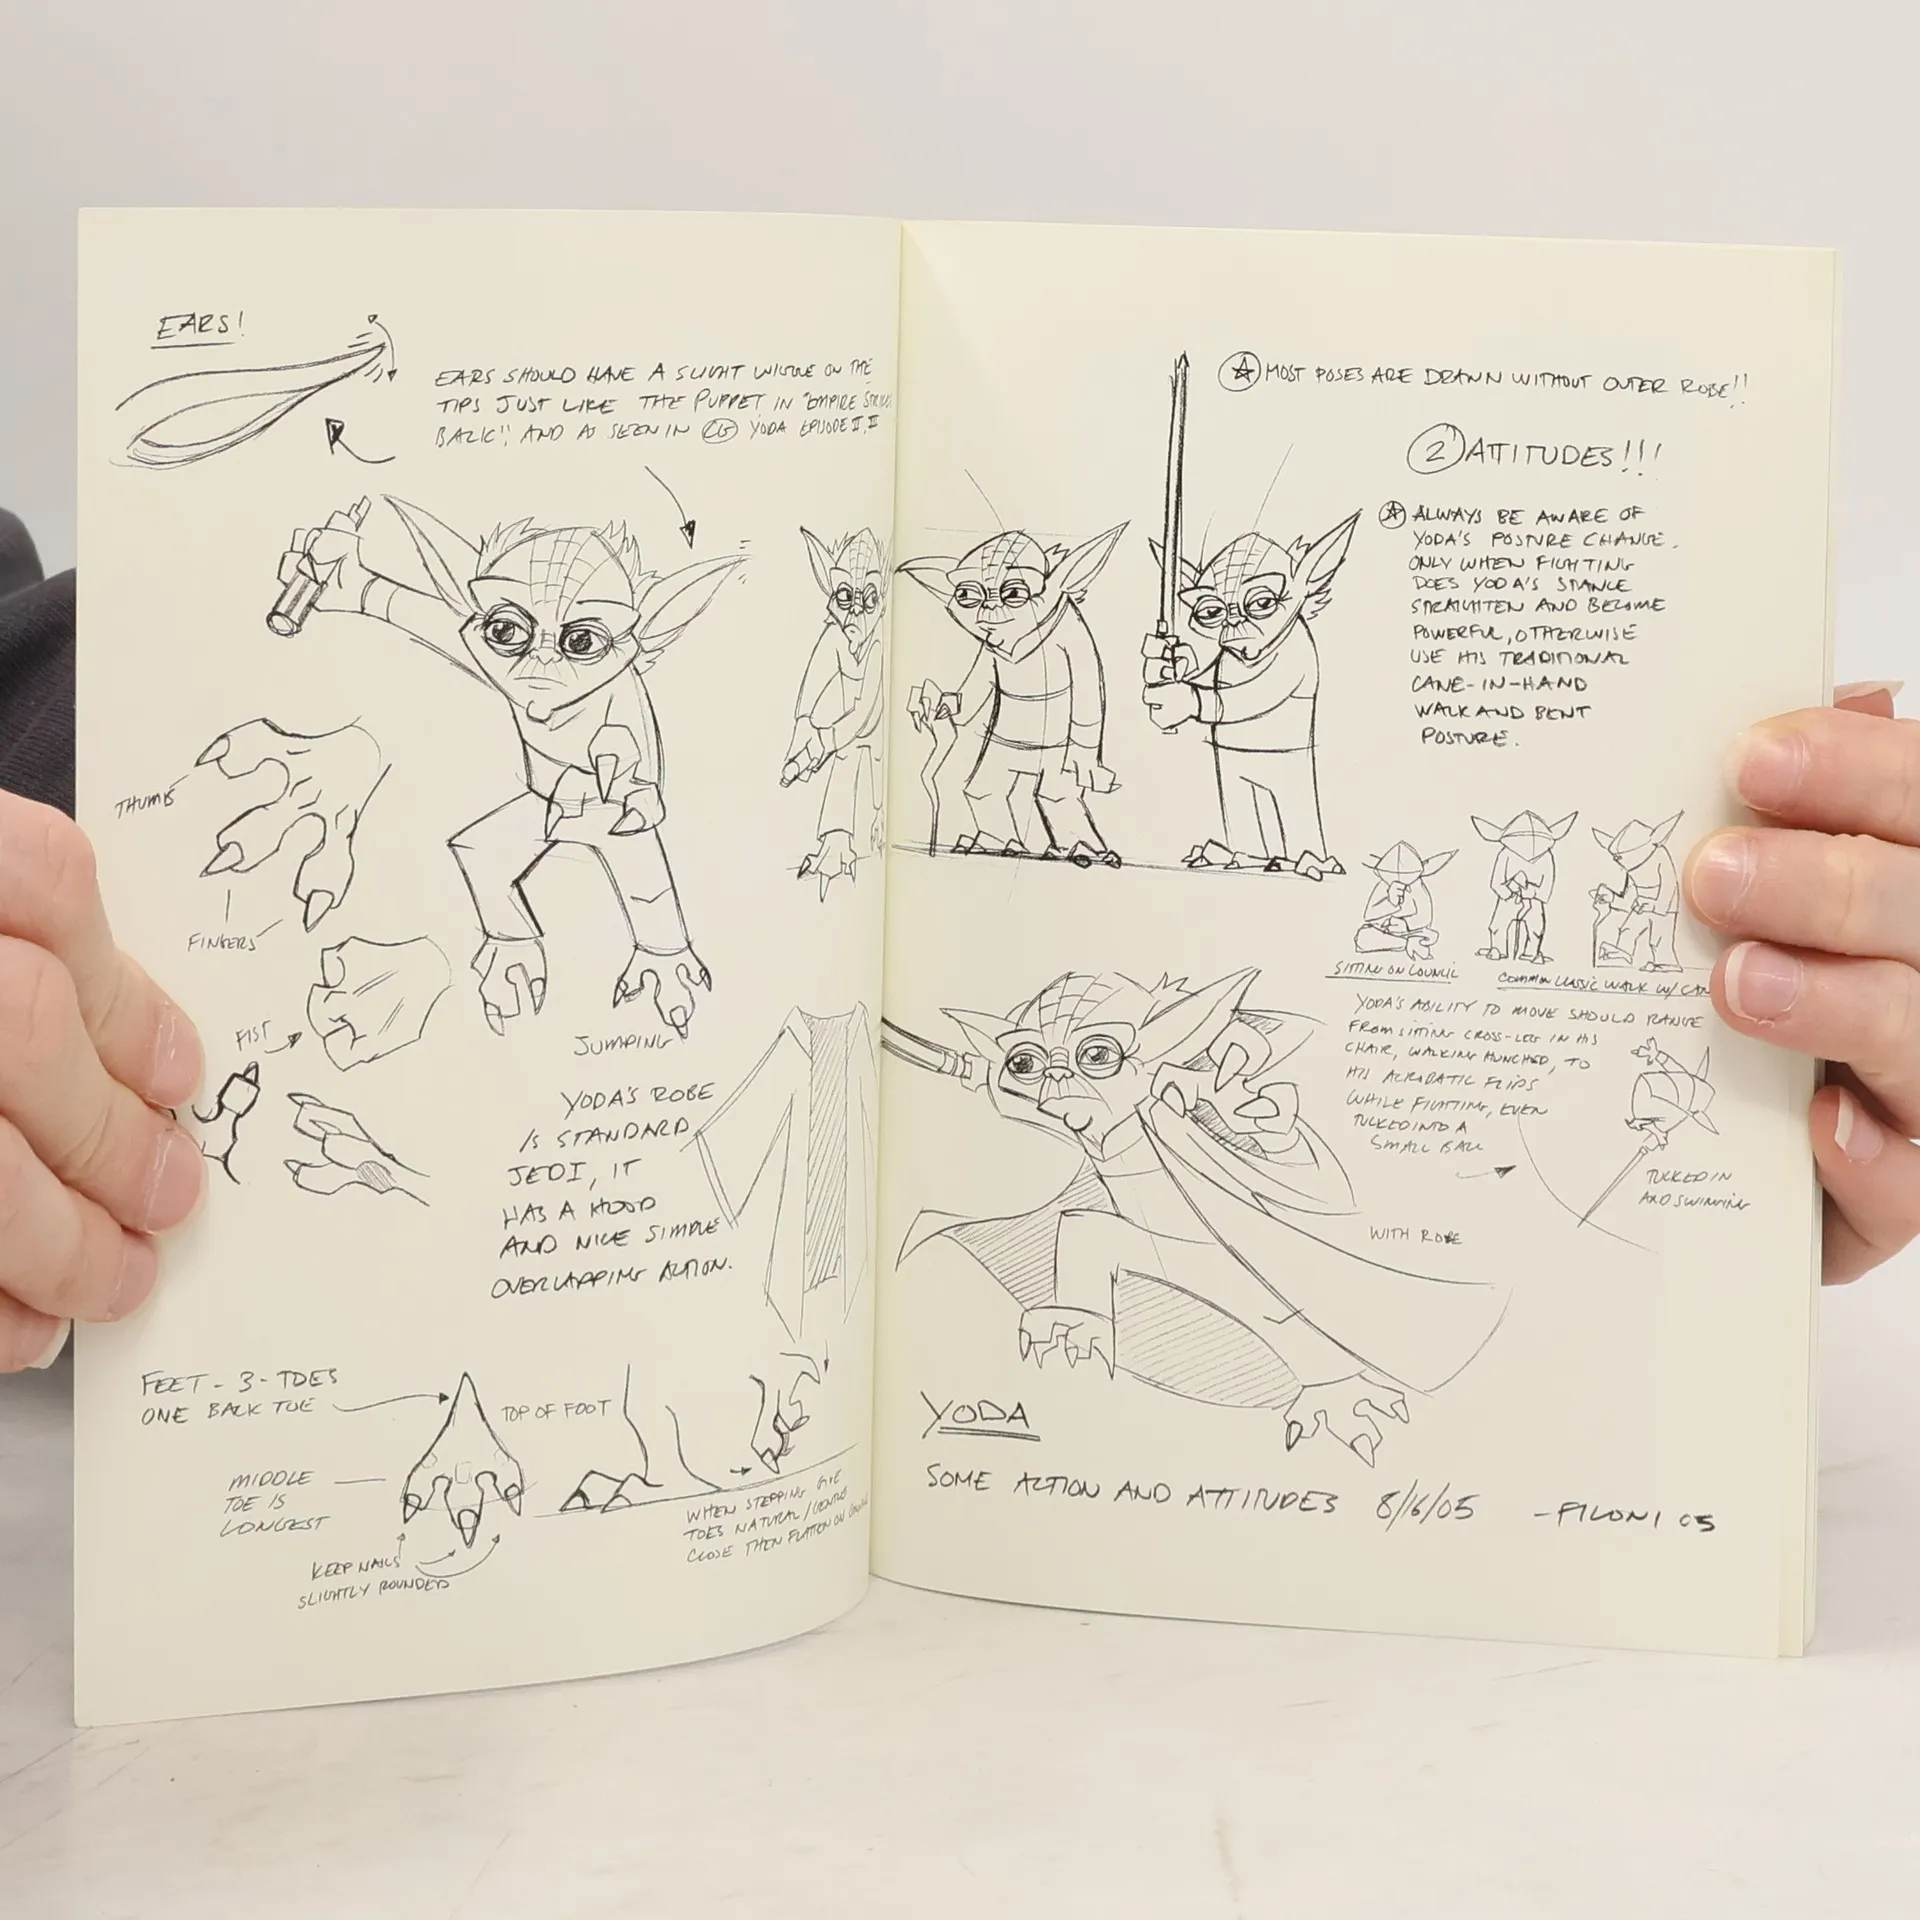 EARS!
EARS SHOULD HAVE A SLIGHT WIGGLE ON THE
TIPS JUST LIKE THE PUPPET IN "EMPIRE STRIKES
BACK", AND AS SEEN IN CG YODA EPISODE II, III
THUMB
FINGERS
FIST
JUMPING
YODA'S ROBE
IS STANDARD
JEDI, IT
HAS A HOOD
AND NICE SIMPLE
OVERLAPPING ACTION.
FEET - 3 - TOES
ONE BACK TOE
TOP OF FOOT
MIDDLE
TOE IS
LONGEST
KEEP NAILS
SLIGHTLY ROUNDED
WHEN STEPPING GIVE
TOES NATURAL/GENTLE
CLOSE THEN FLATTEN ON
MOST POSES ARE DRAWN WITHOUT OUTER ROBE!!
2 ATTITUDES!!!
ALWAYS BE AWARE OF
YODA'S POSTURE CHANGE.
ONLY WHEN FIGHTING
DOES YODA'S STANCE
STRAIGHTEN AND BECOME
POWERFUL, OTHERWISE
USE HIS TRADITIONAL
CANE-IN-HAND
WALK AND BENT
POSTURE.
SITTING ON COUNCIL
COMMON CLASSIC WALK W/ CAN
YODA'S ABILITY TO MOVE SHOULD RANGE
FROM SITTING CROSS-LEG IN HIS
CHAIR, WALKING HUNCHED, TO
HIS ACROBATIC FLIPS
WHILE FIGHTING, EVEN
TUCKED INTO A
SMALL BALL
TUCKED IN
AND SWINGING
WITH ROBE
YODA
SOME ACTION AND ATTITUDES 8/16/05 -FILONI 05